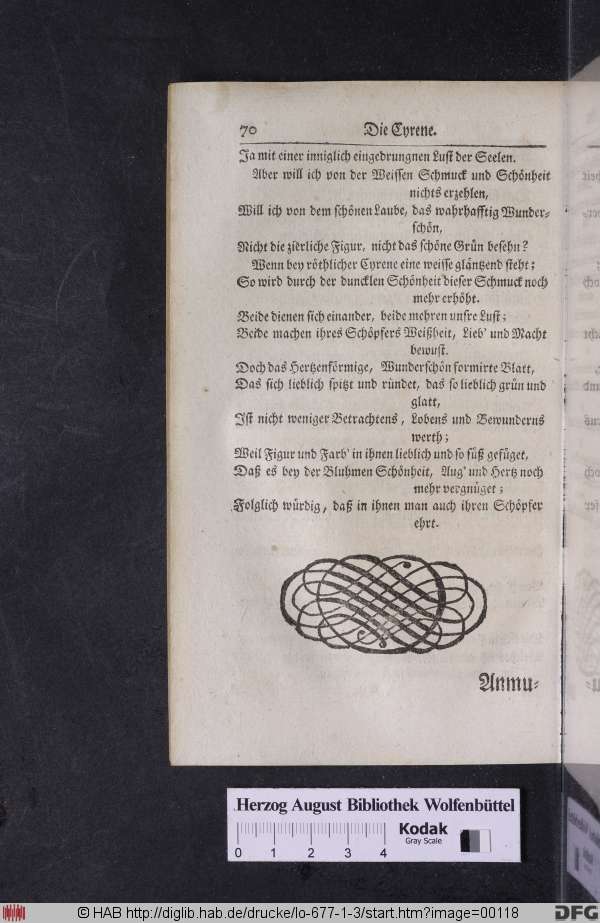 70 Die Cyrene.
Ja mit einer inniglich eingedrungnen Lust der Seelen.
Aber will ich von der Weissen Schmuck und Schönheit
nichts erzehlen,
Will ich von dem schönen Laube, das wahrhafftig Wunder-
schön,
Nicht die zierliche Figur, nicht das schöne Grün besehn?
Wenn bey röthlicher Cyrene eine weisse gläntzend steht;
So wird durch der duncklen Schönheit dieser Schmuck noch
mehr erhöht.
Beide dienen sich einander, beide mehren unsre Lust;
Beide machen ihres Schöpfers Weißheit, Lieb' und Macht
bewust.
Doch das Hertzenförmige, Wunderschön formirte Blatt,
Das sich lieblich spitzt und ründet, das so lieblich grün und
glatt,
Ist nicht weniger Betrachtens, Lobens und Bewunderns
werth;
Weil Figur und Farb' in ihnen lieblich und so süß gefüget,
Daß es bey der Bluhmen Schönheit, Aug' und Hertz noch
mehr vergnüget;
Folglich würdig, daß in ihnen man auch ihren Schöpfer
ehrt.
Anmu-
Herzog August Bibliothek Wolfenbüttel
Kodak
Gray Scale
0 1 2 3 4
© HAB http://diglib.hab.de/drucke/lo-677-1-3/start.htm?image=00118
DFG